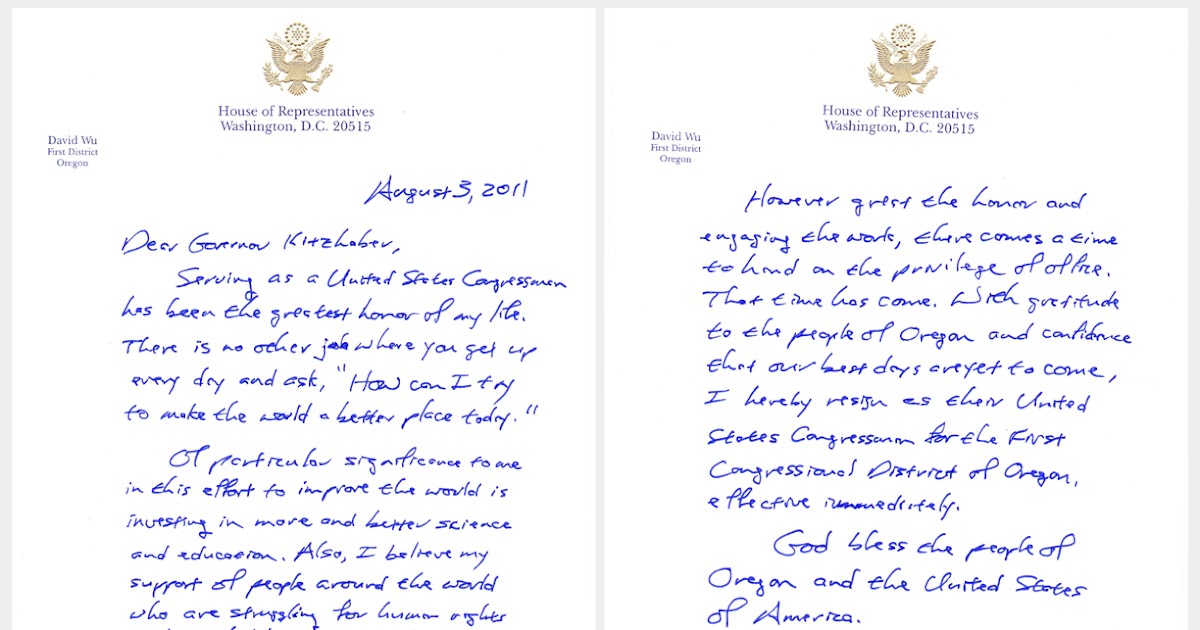 House of Representatives
Washington, D.C. 20515
David Wu
First District
Oregon
August 3, 2011
Dear Governor Kitzhaber,
Serving as a United States Congressman
has been the greatest honor of my life.
There is no other job where you get up
every day and ask, "How can I try
to make the world a better place today."
Of particular significance to me
in this effort to improve the world is
investing in more and better science
and education. Also, I believe my
support of people around the world
who are struggling for human rights
House of Representatives
Washington, D.C. 20515
David Wu
First District
Oregon
However great the honor and
engaging the work, there comes a time
to hand on the privilege of office.
That time has come. With gratitude
to the people of Oregon and confidence
that our best days are yet to come,
I hereby resign as their United
States Congressman for the First
Congressional District of Oregon,
effective immediately.
God bless the people of
Oregon and the United States
of America.